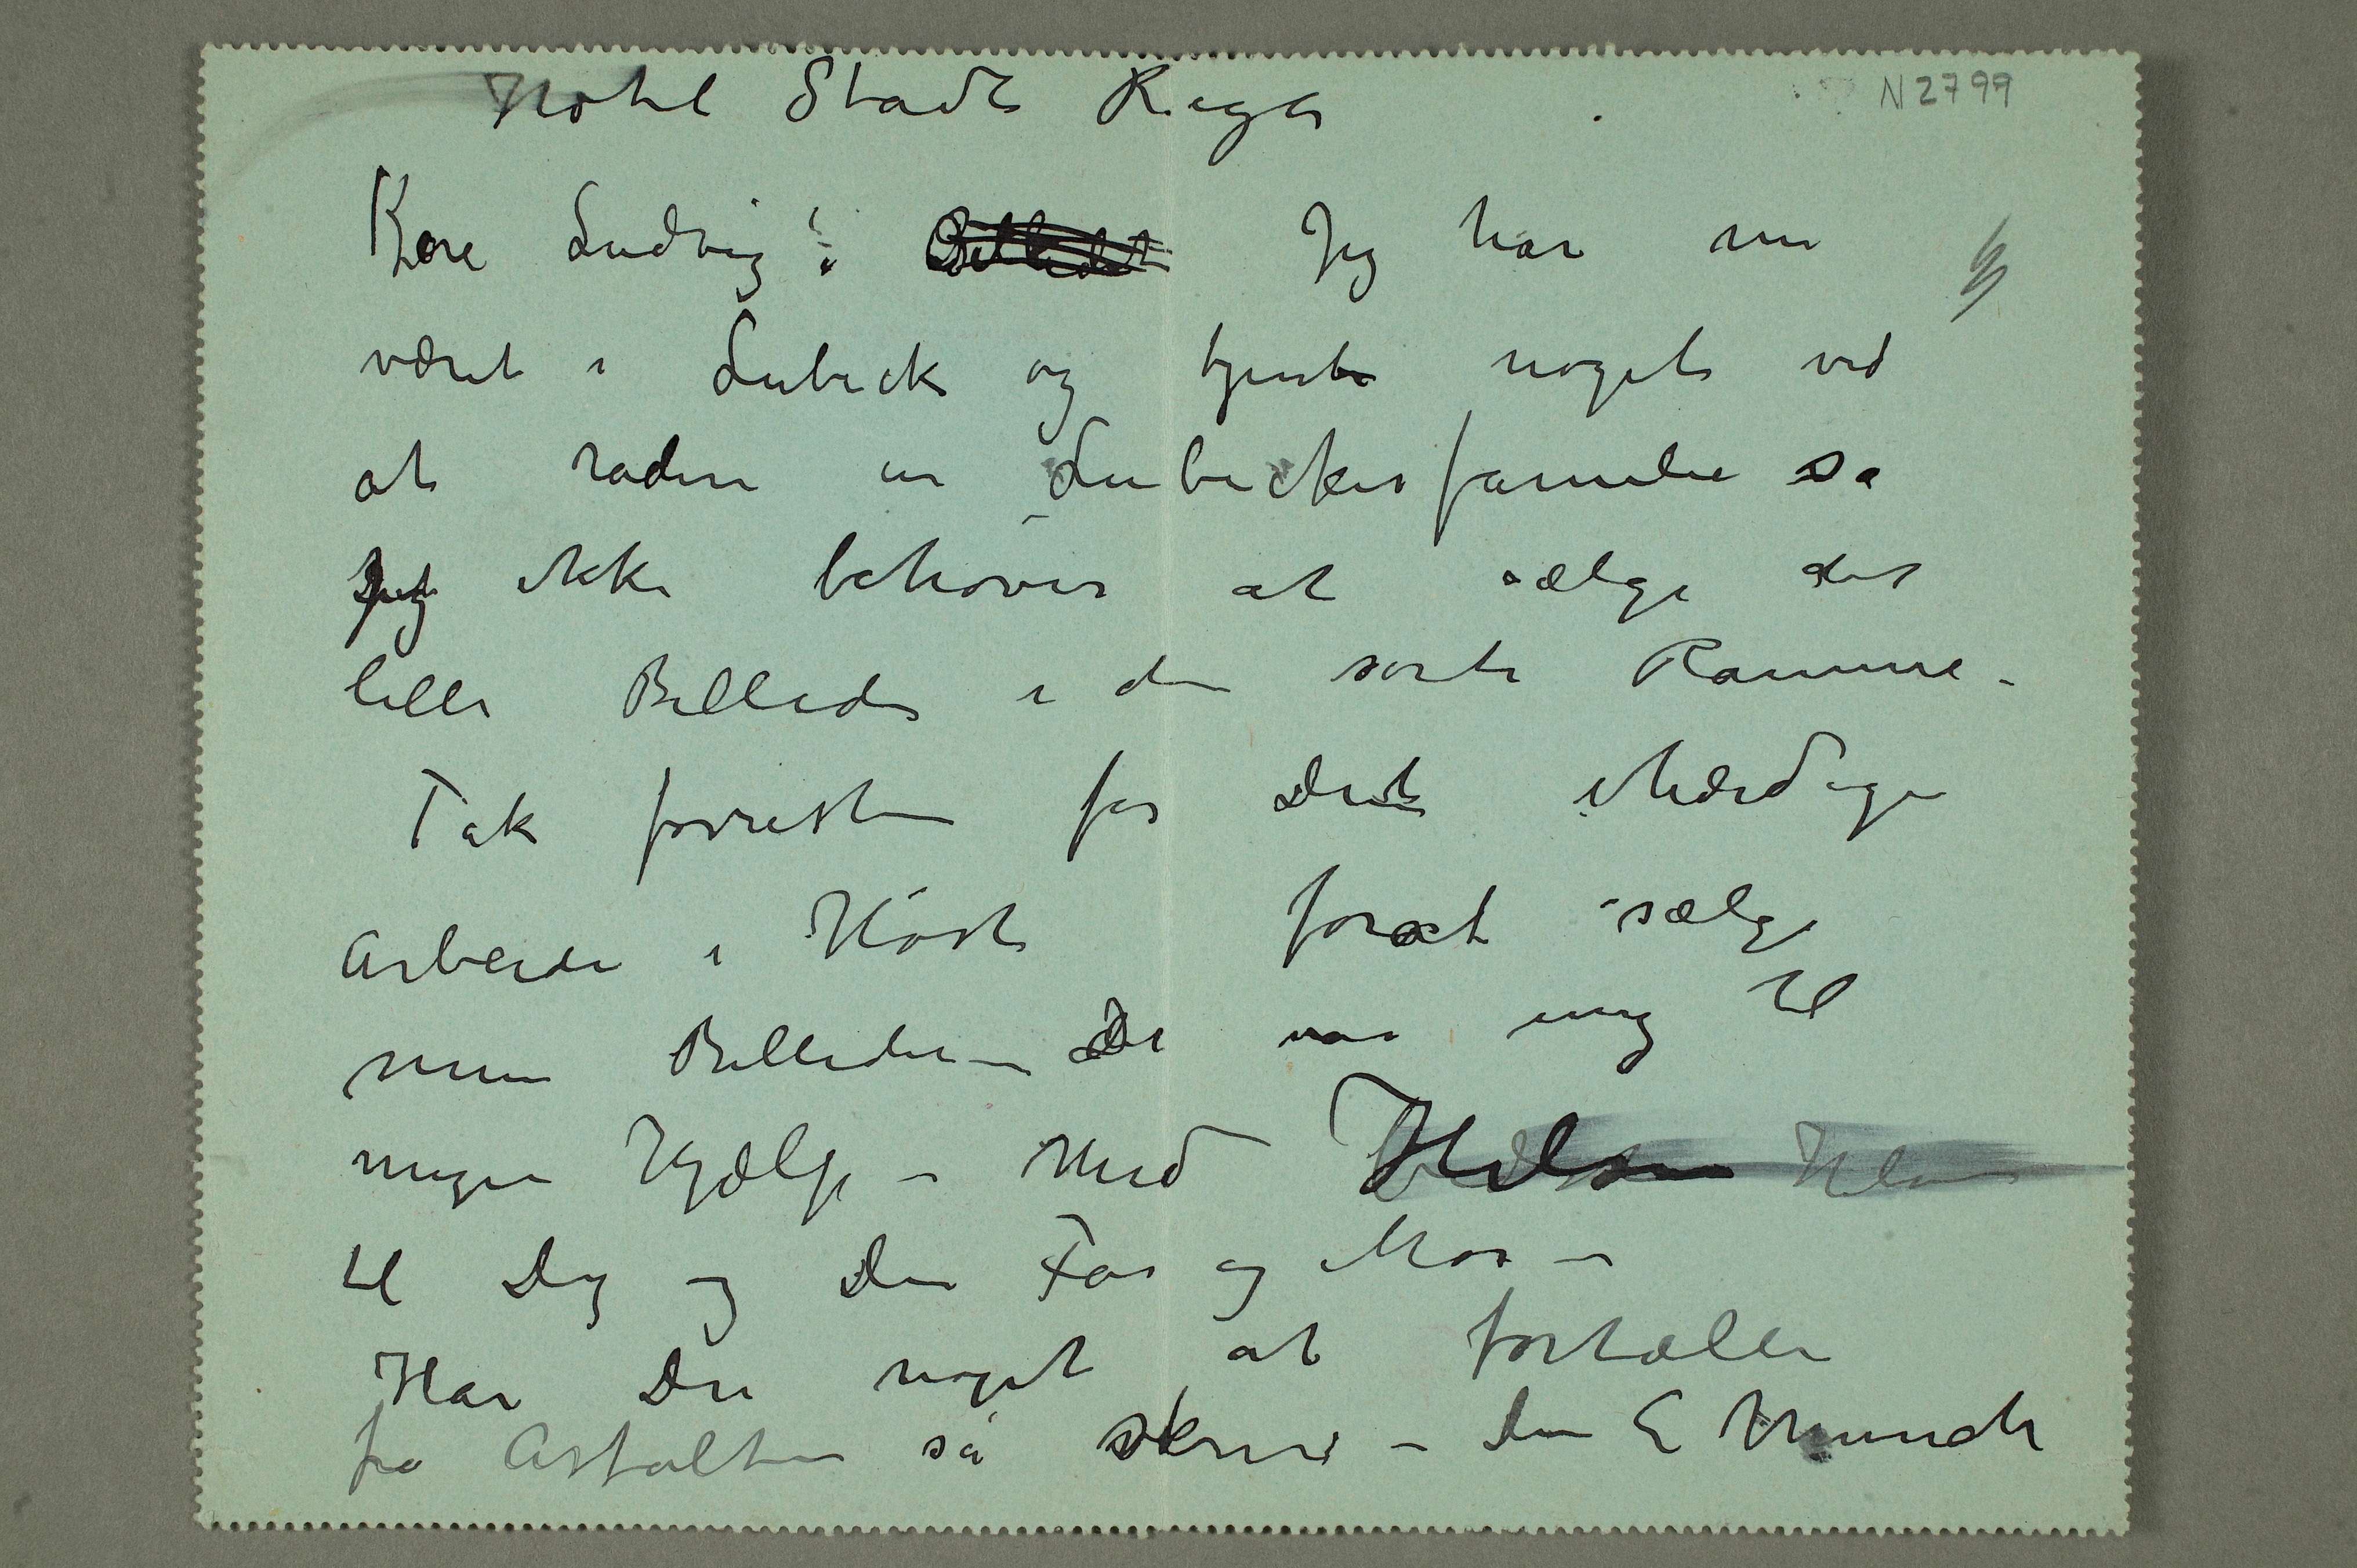 Hotel Stadt Riga
N 2799
Kære Ludvig! Billedet Jeg har nu
været i Lübeck og tjent noget ved
at radere en Lübeckerfamilie så
jeg ikke behøver at sælge det
lille Billede i den sorte Ramme.
Tak forresten for Dit ihærdige
Arbeide i Høst forat sælge
mine Billeder – De var mig til
megen Hjælp – Med Hilsen Hilsen
til Dig og Din Far og Mor –
Har Du noget at fortælle
fra Asfalten så skriv – Din E Munch